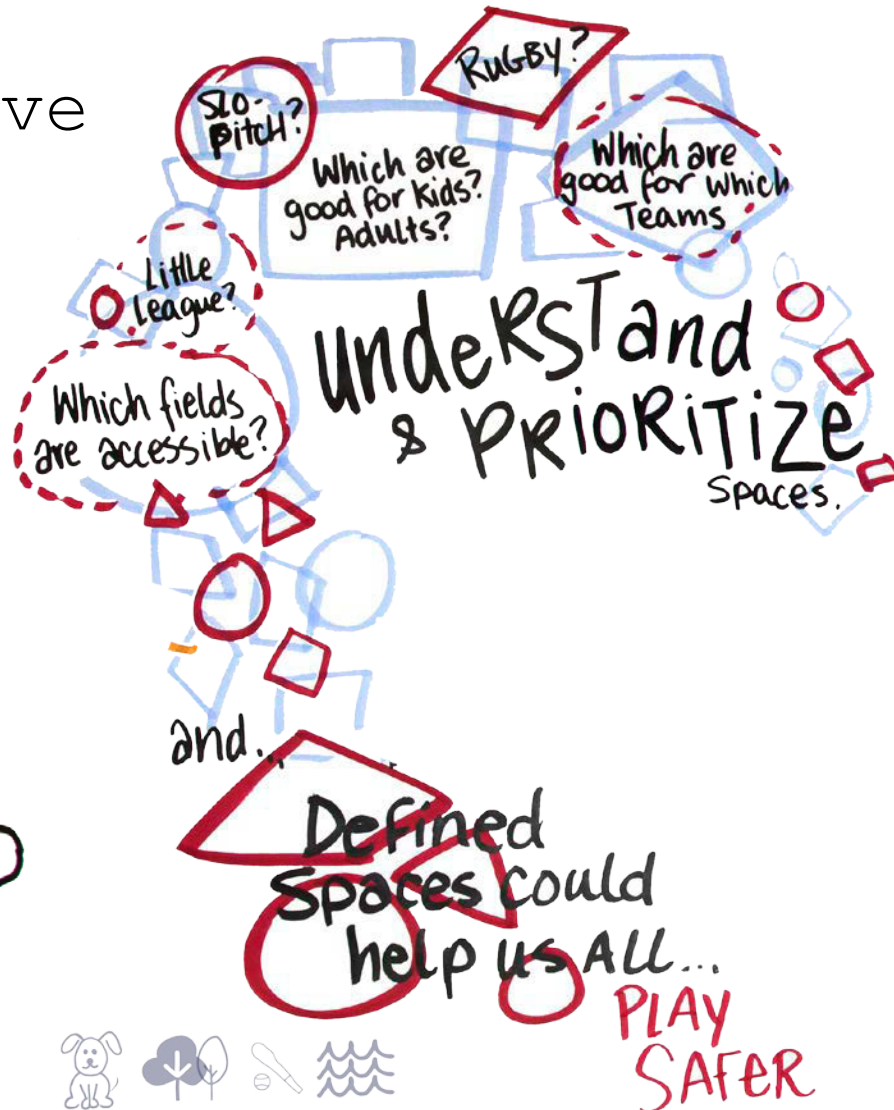 ve
SLO-
Pitch?
RUGBY?
Which are
good for Kids?
Adults?
Which are
good for which
Teams
Little
League?
Which fields
are accessible?
UndeRSTand
& PRioRiTiZe
Spaces.
and...
Defined
Spaces could
help us ALL...
PLAY
SAFeR